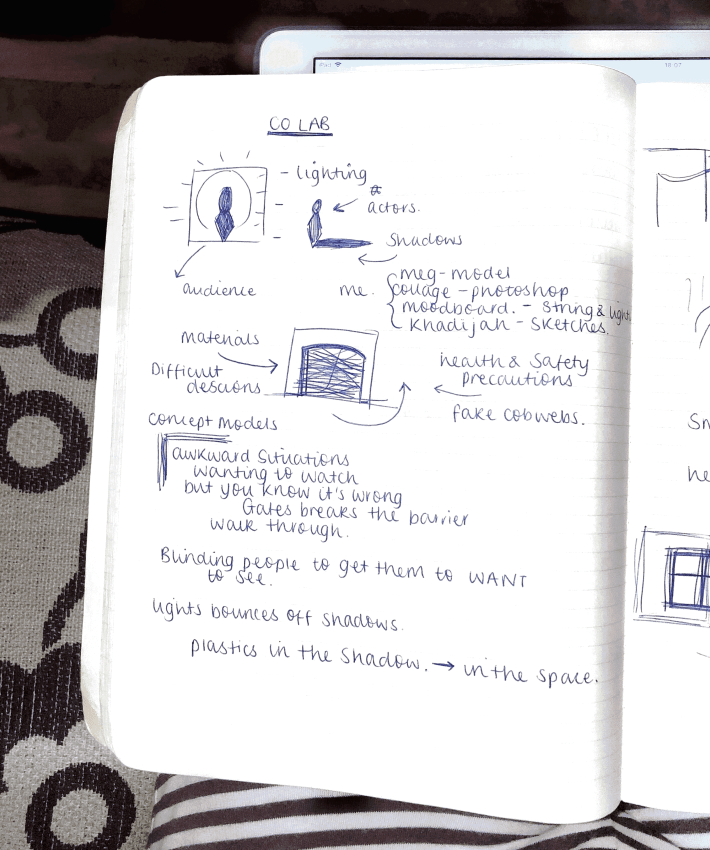 iPad
18:07
CO LAB
- lighting
actors.
Shadows
audience
me.
meg - model
collage - photoshop
moodboard. - String & lights
Khadijah - Sketches.
Materials
Difficult
descions
health & Safety
Precautions
fake cobwebs.
Concept Models
awkward Situations
wanting to watch
but you know it's wrong
Gates breaks the barrier
walk through.
Blinding people to get them to WANT
to see.
Lights bounces off shadows.
plastics in the Shadow. → in the space.
Sh
he